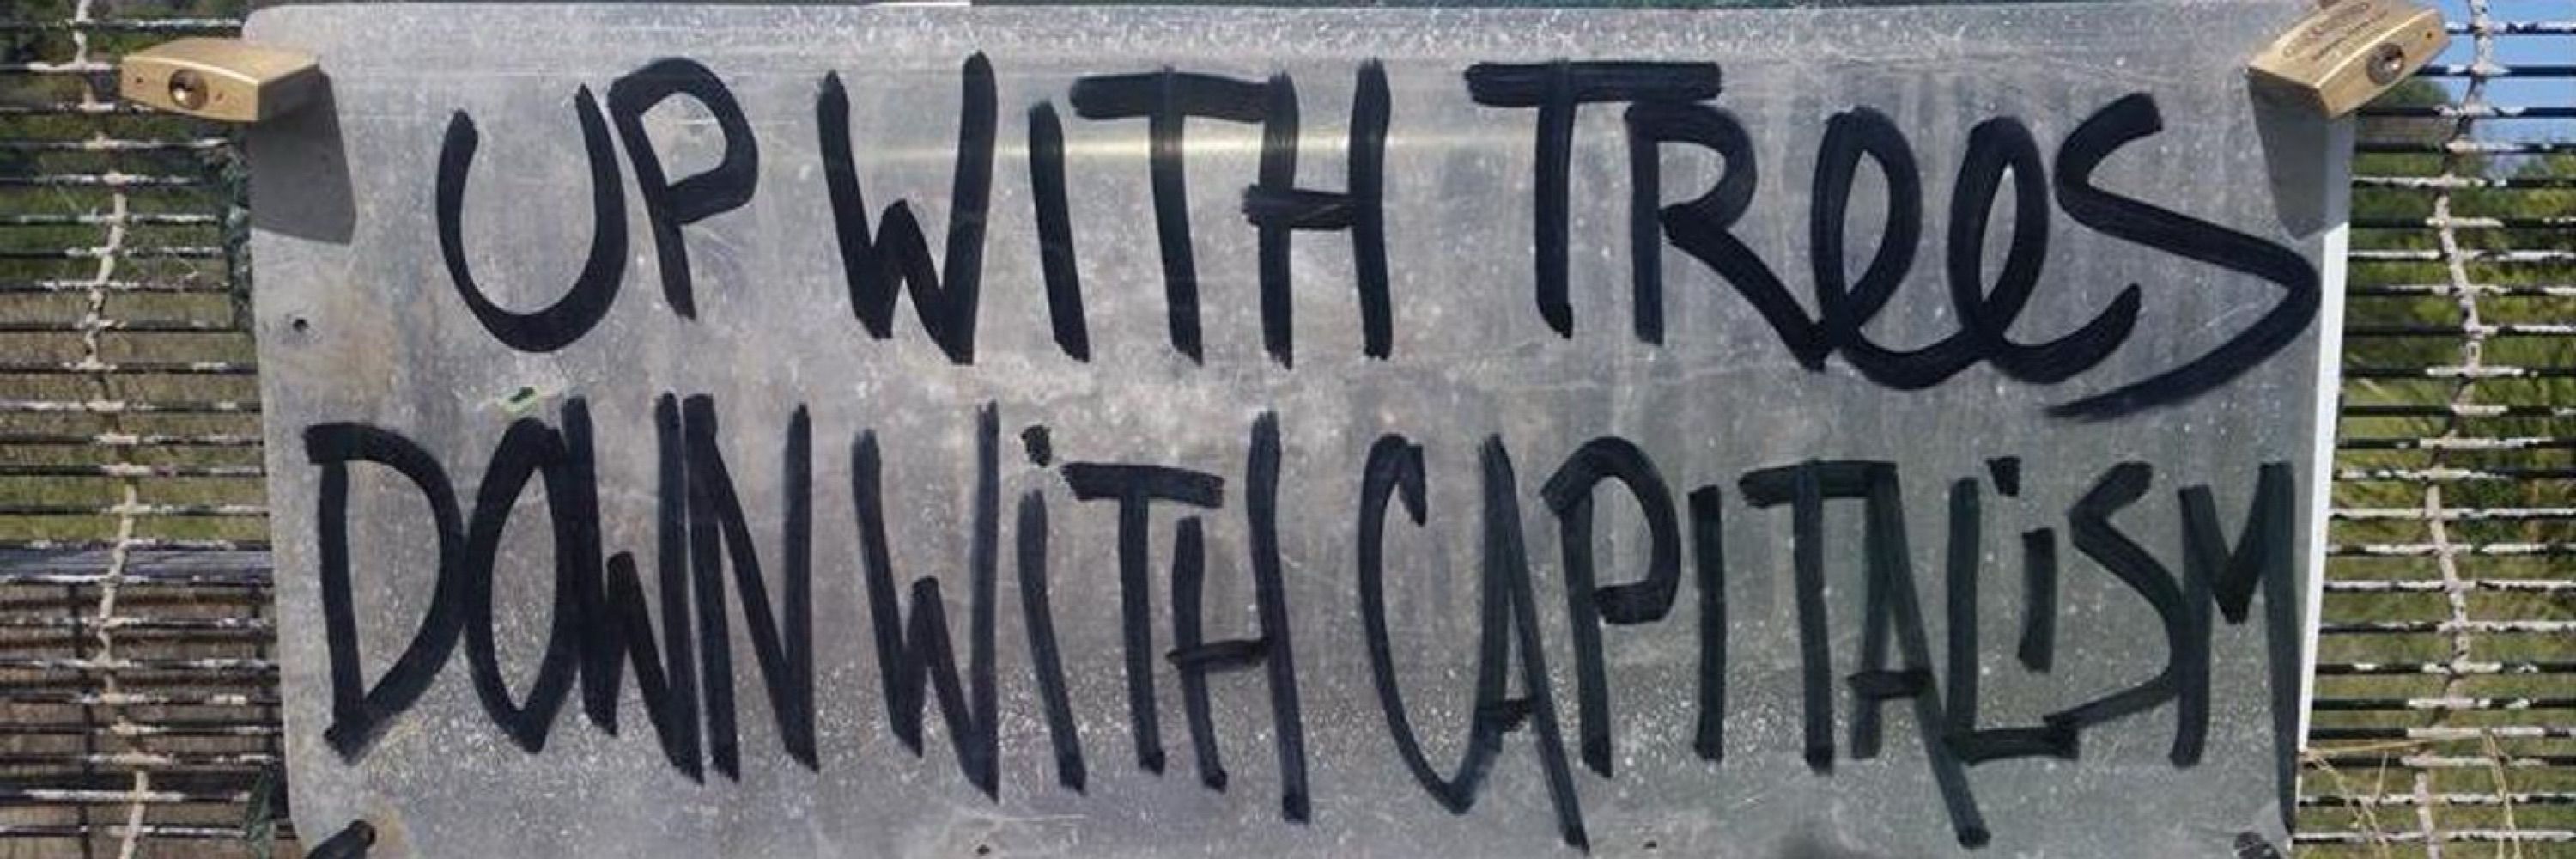 UP WITH TRees
DOWN WiTH CAPITALiSM